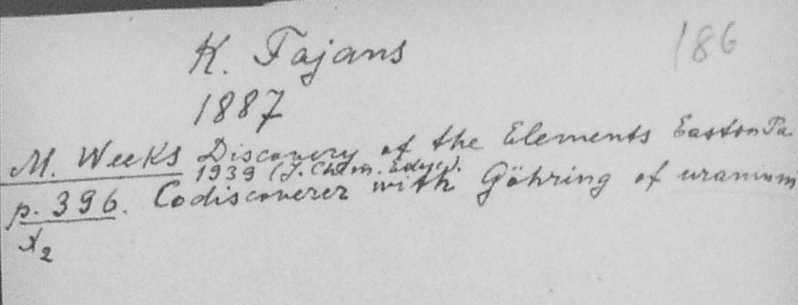 186
K. Fajans
1887
M. Weeks Discovery of the Elements Easton Pa
1939 (J. Chem. Educ).
p. 396. Codiscoverer with Göhring of uranium
X2